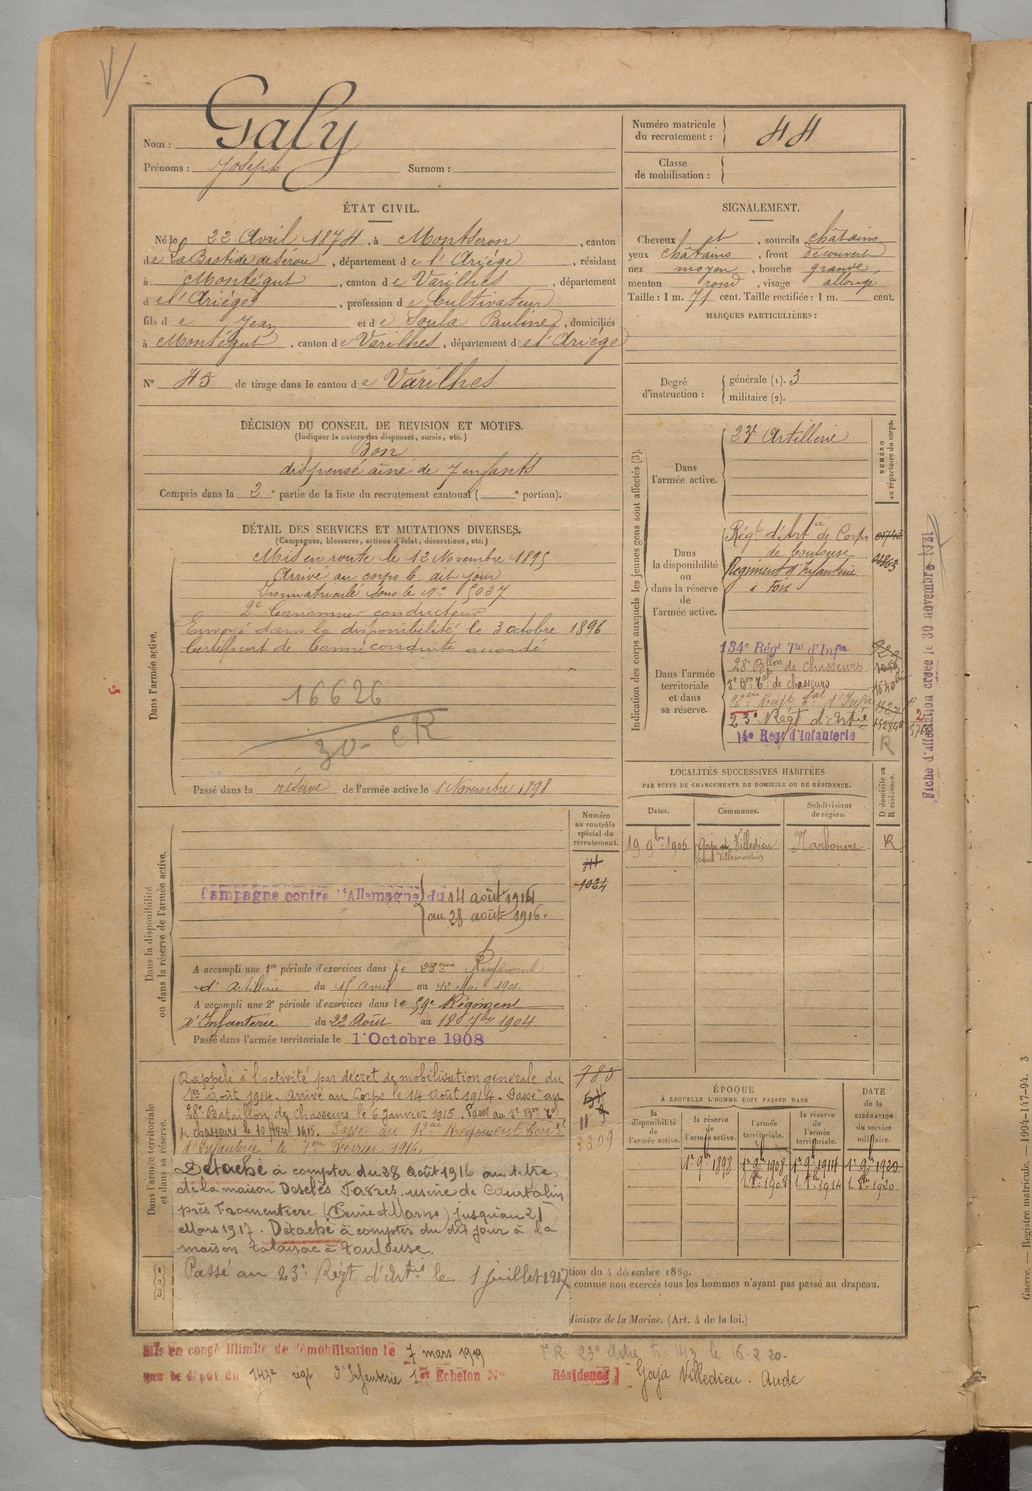 Nom : Galy
Prénoms : Joseph Surnom :
Numéro matricule du recrutement : 44
Classe de mobilisation :
ÉTAT CIVIL.
Né le 22 Avril 1874, à Montseron, canton
de La Bastide de Sérou, département de l'Ariège, résidant
à Montégut, canton de Varilhes, département
de l'Ariège, profession de Cultivateur
fils de Jean et de Soula Pauline, domiciliés
à Montégut, canton de Varilhes, département de l'Ariège
N° 45 de tirage dans le canton de Varilhes
SIGNALEMENT.
Cheveux et, sourcils châtains
yeux châtains, front découvert
nez moyen, bouche grande,
menton rond, visage allongé
Taille : 1 m. 71 cent. Taille rectifiée : 1 m. cent.
MARQUES PARTICULIÈRES :
Degré d'instruction : générale (1). 3
militaire (2).
DÉCISION DU CONSEIL DE REVISION ET MOTIFS.
(Indiquer la nature des dispenses, sursis, etc.)
Bon
dispensé aîné de 7 enfants
Compris dans la 2e partie de la liste du recrutement cantonal ( e portion).
DÉTAIL DES SERVICES ET MUTATIONS DIVERSES.
(Campagnes, blessures, actions d'éclat, décorations, etc.)
Dans l'armée active.
Mis en route le 12 Novembre 1895
Arrivé au corps le dit jour
Immatriculé sous le N° 5037
2e Canonnier conducteur
Envoyé dans la disponibilité le 3 octobre 1896
Certificat de bonne conduite accordé
16626
30- CR
Passé dans la réserve de l'armée active le 1 Novembre 1898
Indication des corps auxquels les jeunes gens sont affectés (3).
NUMÉRO au répertoire du corps.
Dans l'armée active.
23e Artillerie
Dans la disponibilité ou dans la réserve de l'armée active.
Régt d'Artie de Corps
de Toulouse
Régiment d'Infanterie
à Foix
Dans l'armée territoriale et dans sa réserve.
134e Régt Tal d'Infie
28e Bllon de chasseurs
5e Bon Tal de chasseurs
23e Régt d'Artie
14e Regt d'Infanterie
R
Fiche d'affectation créée le 30 novembre 1921
LOCALITÉS SUCCESSIVES HABITÉES
PAR SUITE DE CHANGEMENTS DE DOMICILE OU DE RÉSIDENCE.
Dates. Communes. Subdivisions de région. D domicile ou R résidence.
19 9bre 1905 Gaja et Villedieu Narbonne R
Dans la disponibilité ou dans la réserve de l'armée active.
Numéro au contrôle spécial du recrutement.
1024
Campagne contre l'Allemagne du 14 août 1914
au 28 août 1916.
A accompli une 1re période d'exercices dans le 23ème Régiment
d'Artillerie du 15 avril au 12 Mai 1901.
A accompli une 2e période d'exercices dans le 59e Régiment
d'Infanterie du 22 Août au 18 7bre 1904
Passé dans l'armée territoriale le 1er Octobre 1908
Dans l'armée territoriale et dans sa réserve.
Rappelé à l'activité par décret de mobilisation générale du
1er Août 1914. Arrivé au Corps le 14 Août 1914. Passé au
28e Bataillon de chasseurs le 6 Janvier 1915. Passé au 5e Bon Tal
de chasseurs le 10 Avril 1915. Passé au Régiment
d'Infanterie le Février 1916.
Détaché à compter du 28 Août 1916 au titre
de la maison usine de Courtalin
près (Seine et Marne) jusqu'au 21
Mars 1917. Détaché à compter du dit jour à la
maison à Toulouse.
Passé au 23e Régt d'Artie le 1 juillet 1917
785
3309
ÉPOQUE
À LAQUELLE L'HOMME DOIT PASSER DANS
la disponibilité de l'armée active.
la réserve de l'armée active.
l'armée territoriale.
la réserve de l'armée territoriale.
DATE de la LIBÉRATION du service militaire.
1er 9bre 1898 1er 9bre 1908 1er 9bre 1914 1er 9bre 1920
1 8bre 1908 1 8bre 1914 1 8bre 1920
(1) (2) (3)
tion du 4 décembre 1889.
comme non exercés tous les hommes n'ayant pas passé au drapeau.
Ministre de la Marine. (Art. 4 de la loi.)
Mis en congé illimité de démobilisation le 7 mars 1919
par le dépôt du 143e régt d'Infanterie 1er Echelon N°
Résidence Gaja Villedieu. Aude
le 16-2-20-
Guerre. — Registre matricule. — 1994-147-94. 3